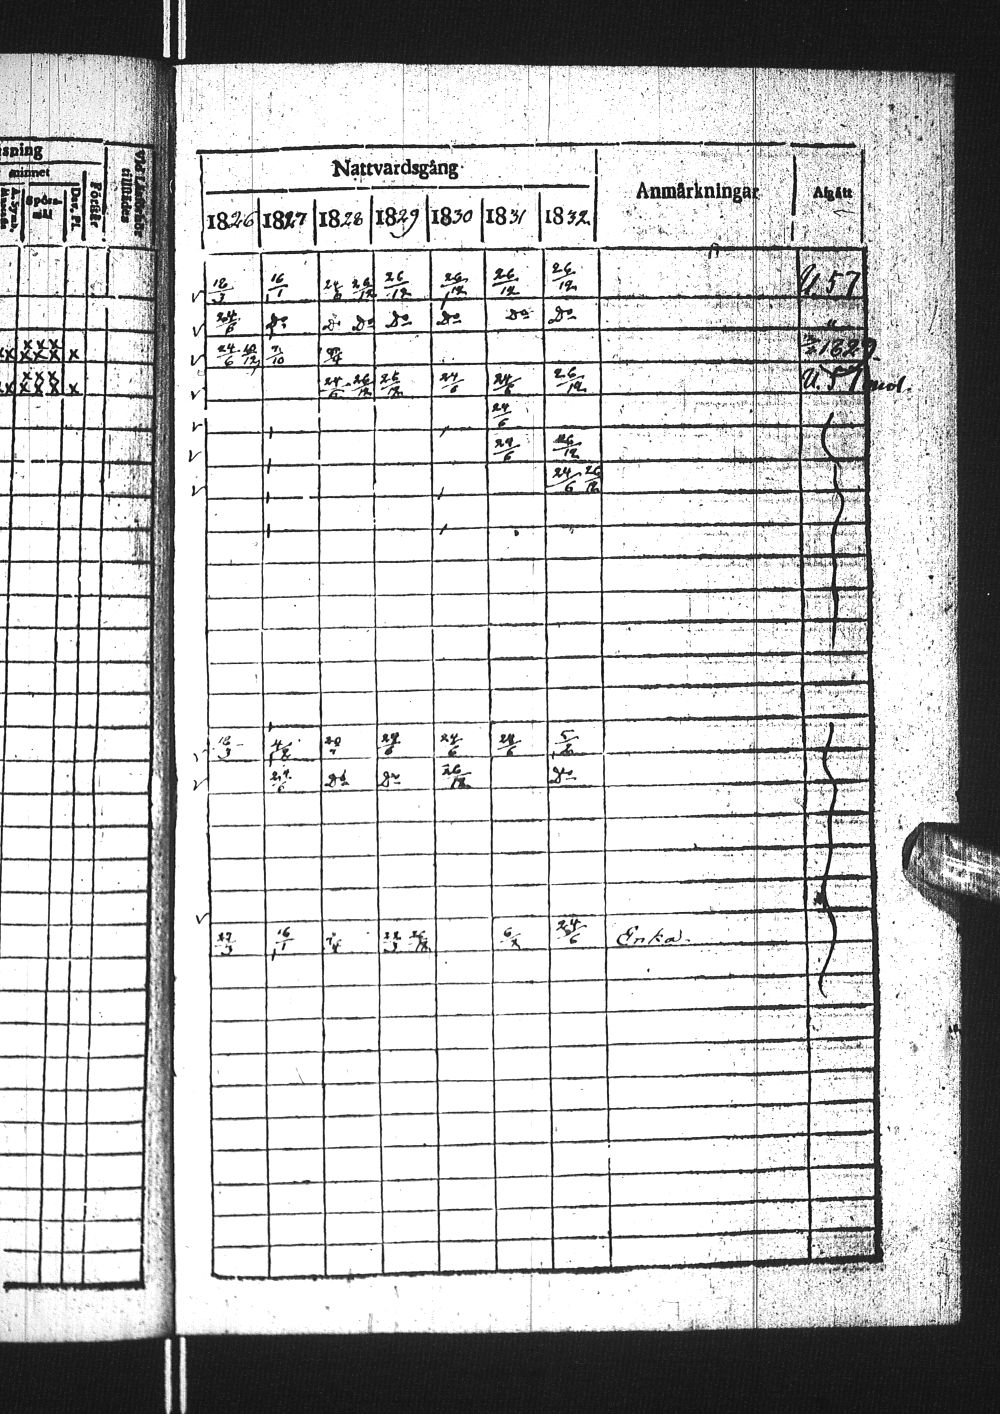 sning
minnet
Spörs-
mål
Dav. Ps.
Förstår
Nattvardsgång
Anmärkningar
Afgått
1826 1827 1828 1829 1830 1831 1832
18/3 16/1 26/12 26/12 26/12 26/12 26/12 U. 57
24/6 Do Do Do Do Do Do Do "
24/6 7/10 1829
24/6 26/12 25/12 24/6 24/6 26/12 U. 57
24/6
24/6 26/12
24/6 26/12
18/3 4/8 20/7 24/6 24/6 24/6 5/8
24/6 Do Do 26/12 Do
27/3 16/1 7/4 22/3 26/12 6/2 24/6 Enka.